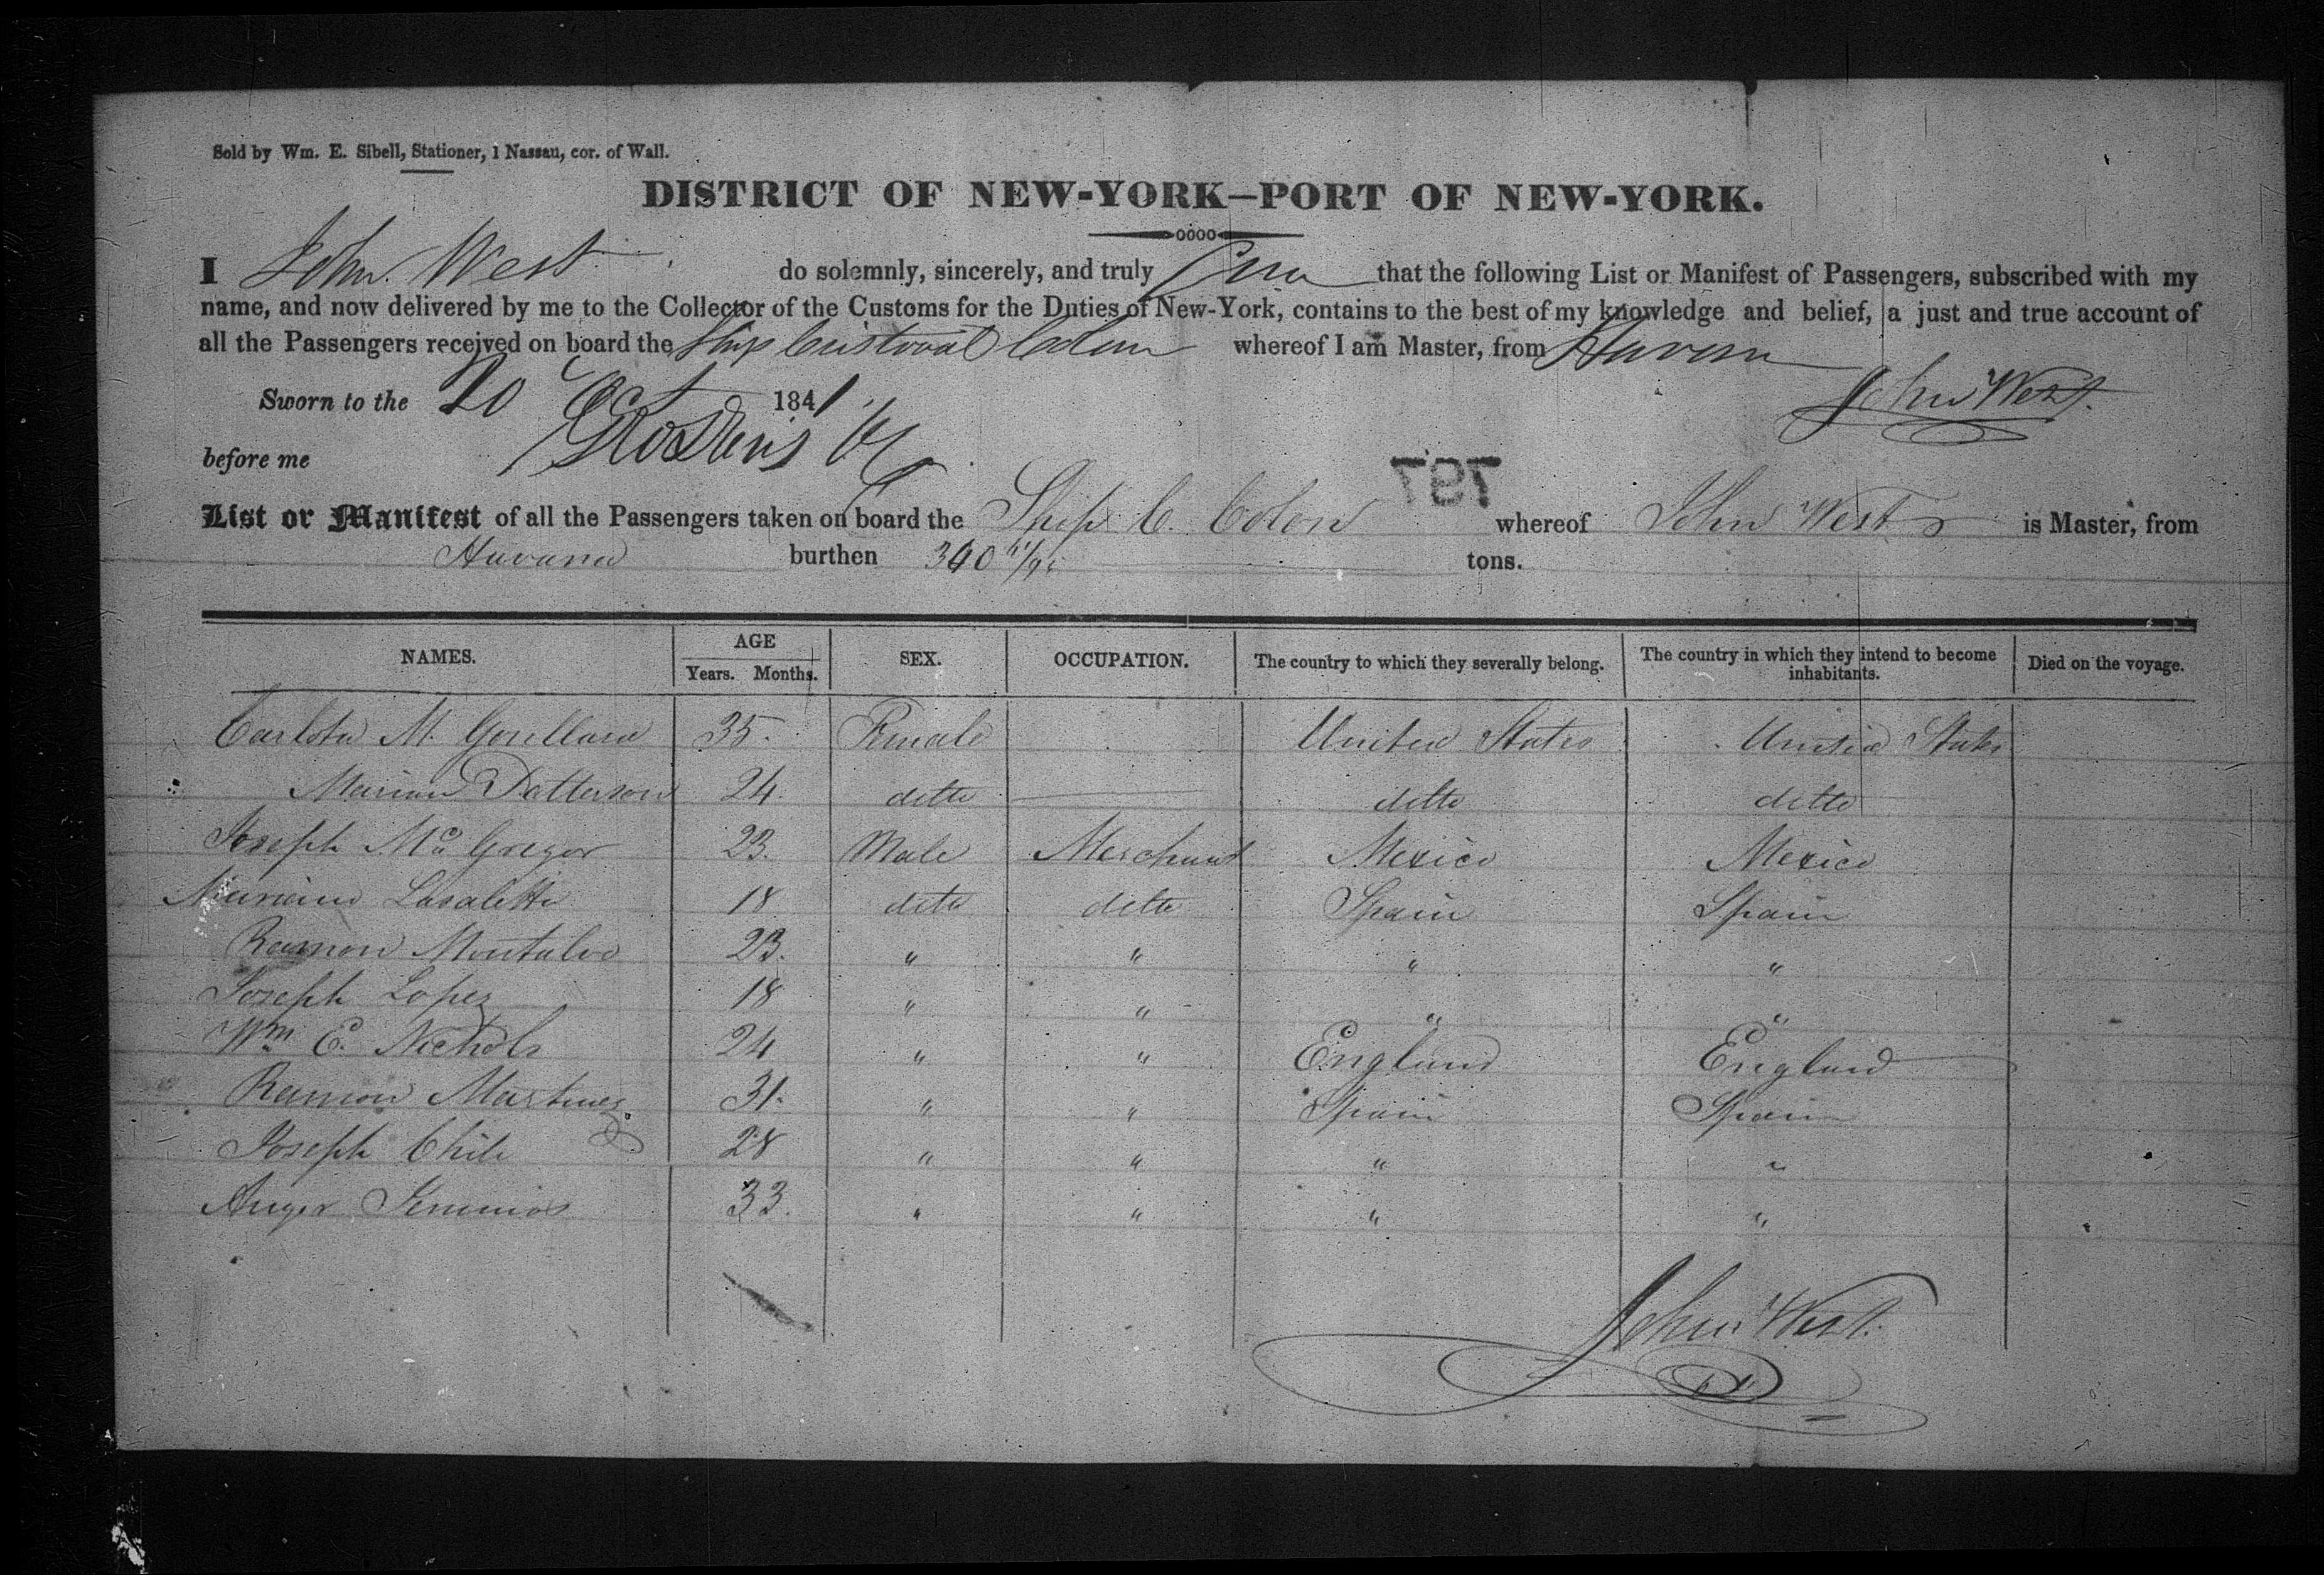 Sold by Wm. E. Sibell, Stationer, 1 Nassau, cor. of Wall.
DISTRICT OF NEW-YORK—PORT OF NEW-YORK.
I John West do solemnly, sincerely, and truly that the following List or Manifest of Passengers, subscribed with my
name, and now delivered by me to the Collector of the Customs for the Duties of New-York, contains to the best of my knowledge and belief, a just and true account of
all the Passengers received on board the Ship Cristoval Colon whereof I am Master, from Havana
Sworn to the 20 Oct 1841. John West.
before me
List or Manifest of all the Passengers taken on board the Ship C. Colon whereof John West is Master, from
Havana burthen 340 tons.
NAMES. AGE Years. Months. SEX. OCCUPATION. The country to which they severally belong. The country in which they intend to become inhabitants. Died on the voyage.
Carlota M. 35. Female United States United States
Patterson 24. ditto ditto ditto
Joseph Mc Gregor 23. Male Merchant Mexico Mexico
Mariano Lasalette 18 ditto ditto Spain Spain
Ramon Montalvo 23. " " " "
Joseph Lopez 18 " " " "
Wm E. Nichols 24 " " England England
Ramon Martinez 31. " " Spain Spain
Joseph Chile 28 " " " "
33. " " " "
John West.